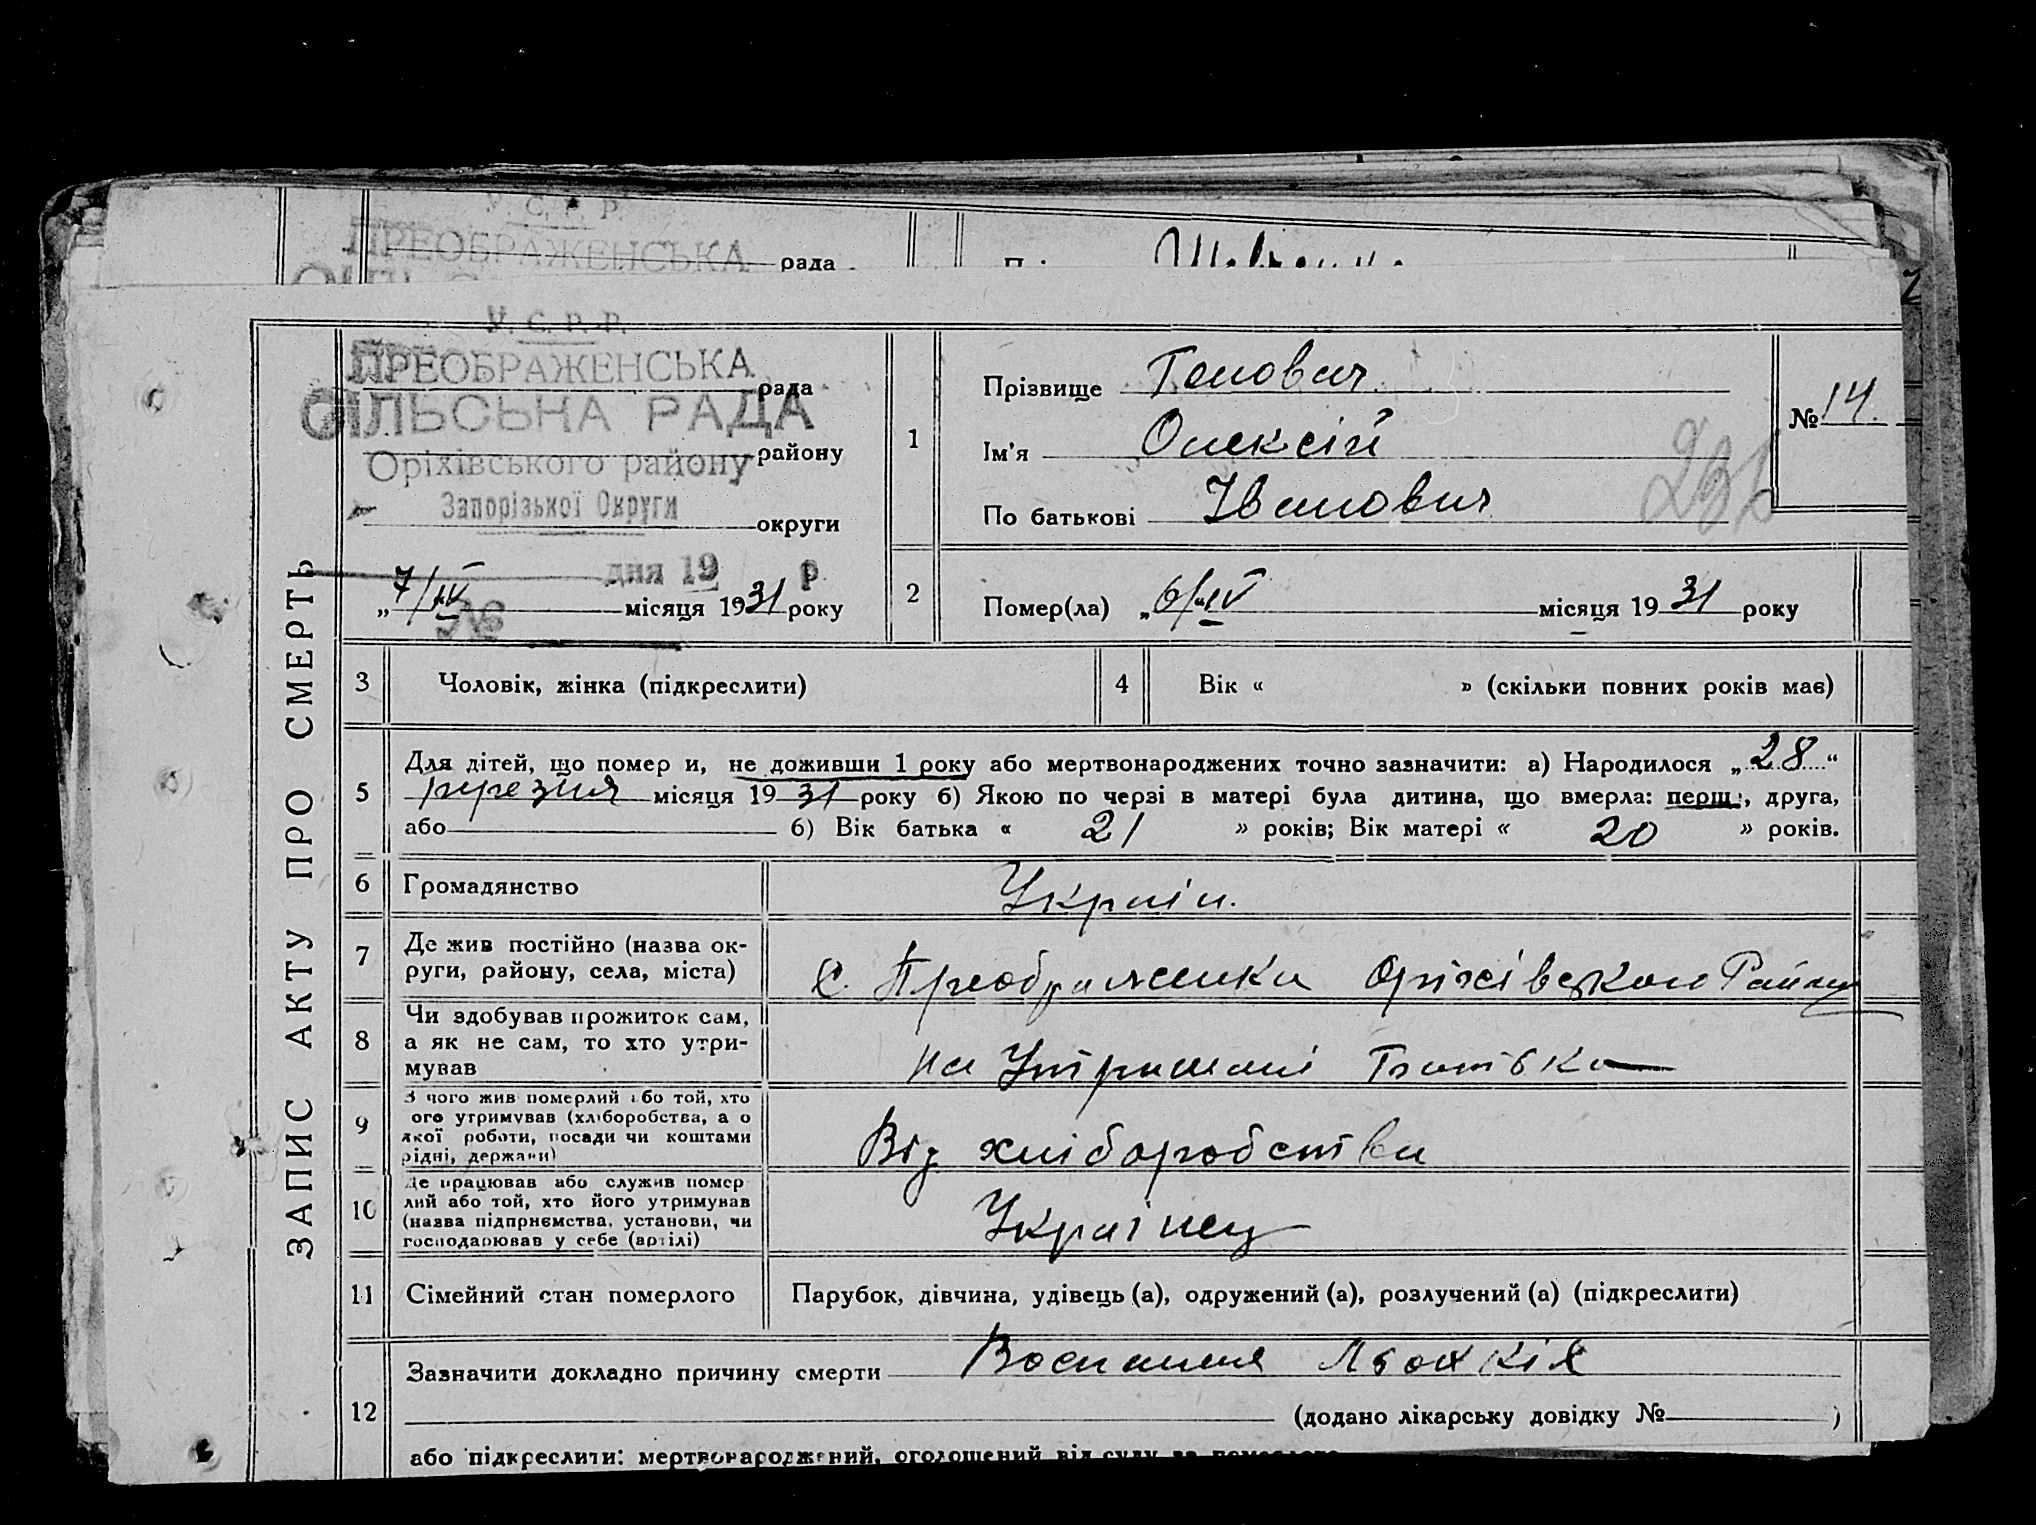 У. С. Р. Р.
ПРЕОБРАЖЕНСЬКА рада
У. С. Р. Р.
ПРЕОБРАЖЕНСЬКА рада
СІЛЬСЬКА РАДА
Оріхівського району району
Запорізької Округи
округи
дня 19 р
„7/IV місяця 1931 року
№
ЗАПИС АКТУ ПРО СМЕРТЬ
1
Прізвище
Ім'я Олексій
По батькові Іванович
№ 14.
2 Помер(ла) „6/IV місяця 1931 року
3 Чоловік, жінка (підкреслити)
4 Вік « » (скільки повних років має)
5 Для дітей, що помер и, не доживши 1 року або мертвонароджених точно зазначити: а) Народилося „28“
місяця 1931 року б) Якою по черзі в матері була дитина, що вмерла: перш, друга,
або б) Вік батька « 21 » років; Вік матері « 20 » років.
6 Громадянство Україн.
7 Де жив постійно (назва ок-
руги, району, села, міста)
с. Преображенка Оріхівського Району
8 Чи здобував прожиток сам,
а як не сам, то хто утри-
мував
на Утриманні Батька
9 З чого жив померлий або той, хто
ого утримував (хліборобства, а о
якої роботи, посади чи коштами
рідні, держави)
Від хліборобства
10 Де працював або служив помер
лий або той, хто його утримував
(назва підприємства, установи, чи
господарював у себе (артілі)
Українец
11 Сімейний стан померлого Парубок, дівчина, удівець (а), одружений (а), розлучений (а) (підкреслити)
12 Зазначити докладно причину смерти
(додано лікарську довідку № )
або підкреслити: мертвонароджений, оголошений від суду за померлого